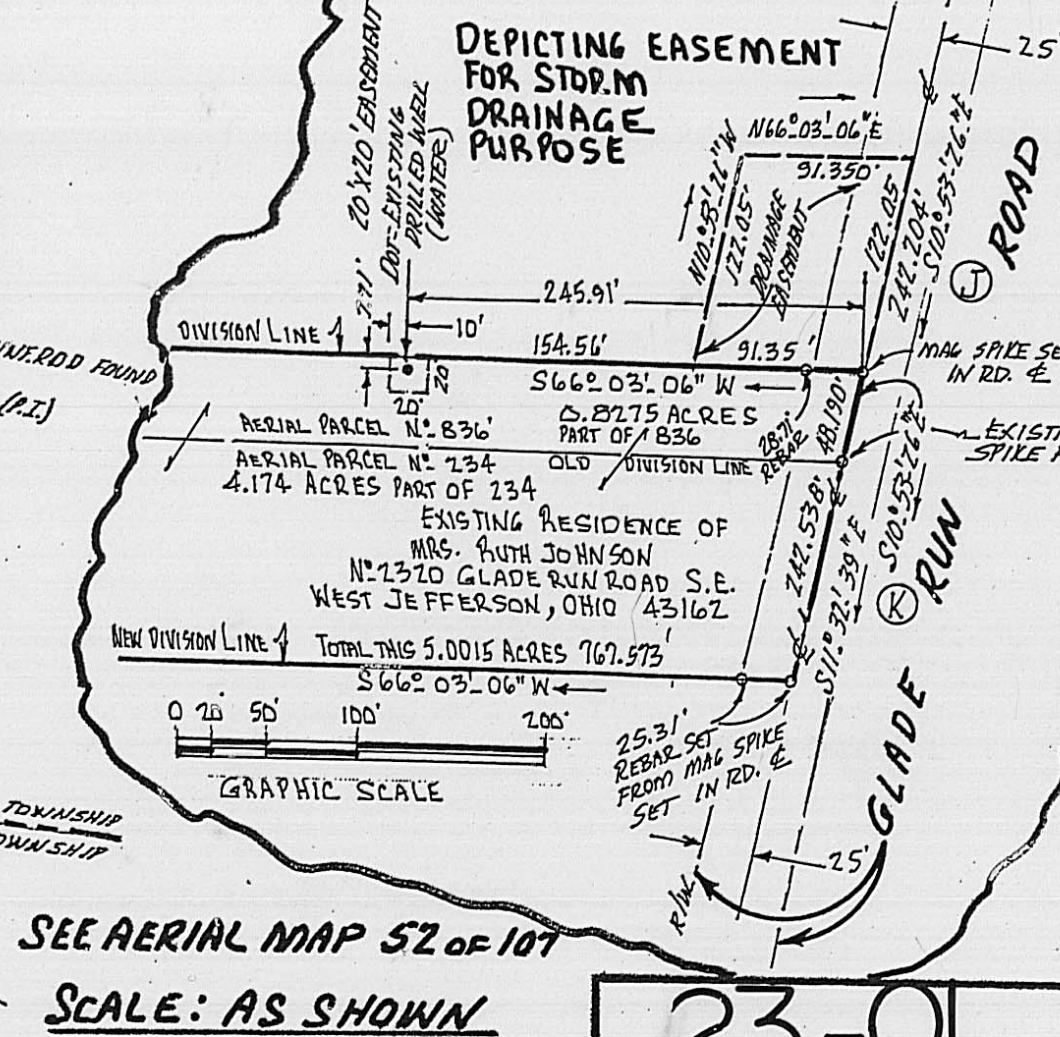 DEPICTING EASEMENT
FOR STORM
DRAINAGE
PURPOSE
20'X20' EASEMENT
DOT=EXISTING
DRILLED WELL
(WATER)
25'
N66º03'06"E
91.350'
122.05'
DRAINAGE
EASEMENT
122.05
242.204'
S10º53'26"E
J
ROAD
245.91'
10'
DIVISION LINE
154.56'
91.35'
S66º03'06" W
20'
20'
FOUND
(P.I.)
MAG SPIKE SE
IN RD. ℄
AERIAL PARCEL Nº 836
0.8275 ACRES
PART OF 836
28.71'
REBAR
48.190'
EXISTI
SPIKE
AERIAL PARCEL Nº 234
OLD DIVISION LINE
4.174 ACRES PART OF 234
EXISTING RESIDENCE OF
MRS. RUTH JOHNSON
Nº2320 GLADE RUN ROAD S.E.
WEST JEFFERSON, OHIO 43162
242.538'
℄
S11º32'39"E
S10º53'26"E
K
RUN
NEW DIVISION LINE
TOTAL THIS 5.0015 ACRES 767.573'
S66º03'06"W
0 20 50' 100' 200'
GRAPHIC SCALE
25.31'
REBAR SET
FROM MAG SPIKE
SET IN RD. ℄
GLADE
25'
R/W
TOWNSHIP
OWNSHIP
SEE AERIAL MAP 52 OF 107
SCALE: AS SHOWN